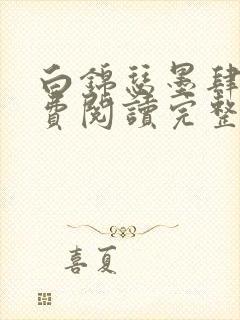 白錦瑟墨肆
費閱讀完整
喜夏